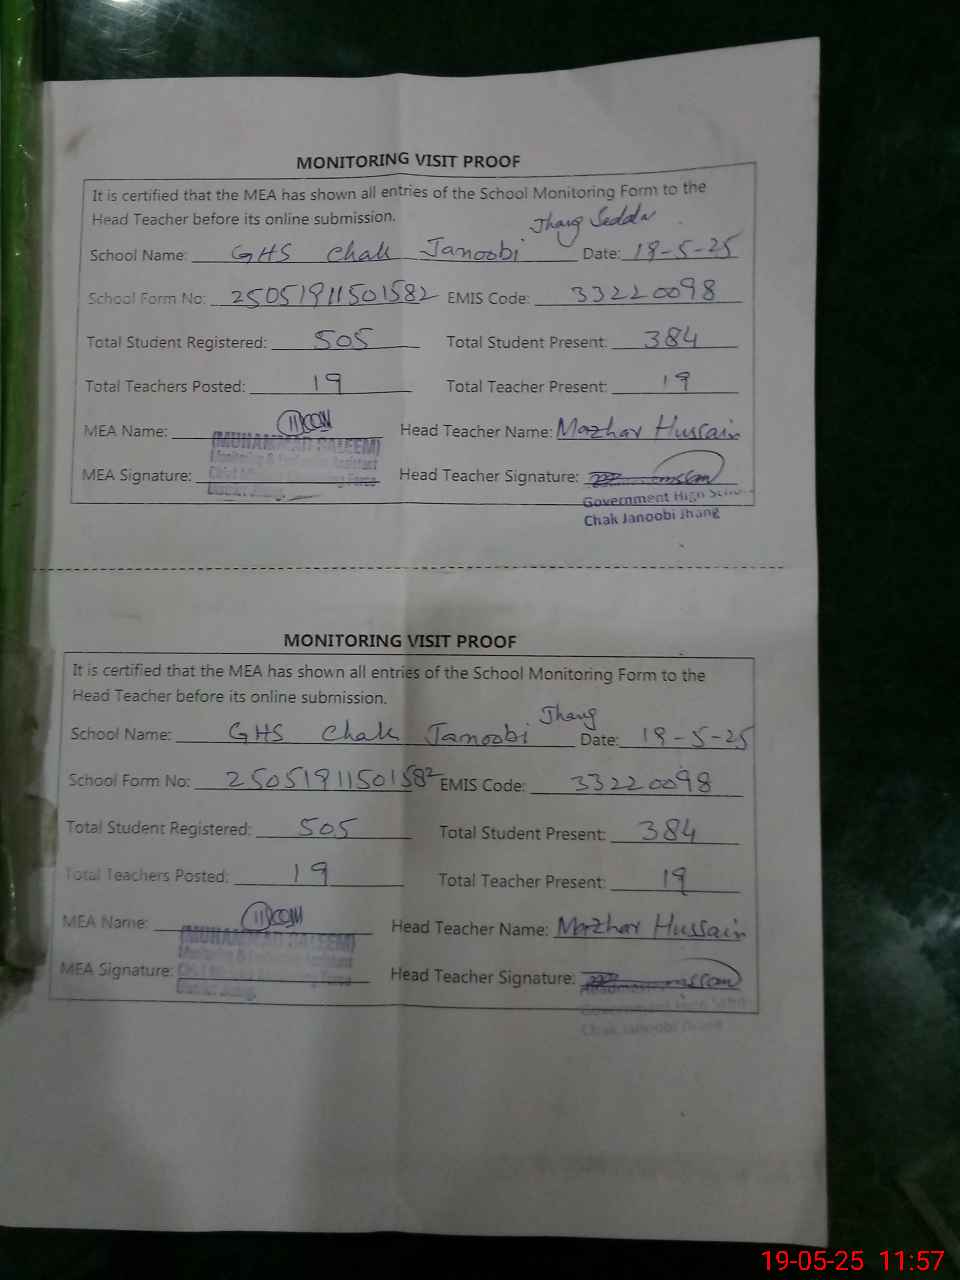 MONITORING VISIT PROOF
It is certified that the MEA has shown all entries of the School Monitoring Form to the
Head Teacher before its online submission.
Jhang Saddar
School Name: GHS Chak Janoobi Date: 19-5-25
School Form No: 25051911501582 EMIS Code: 33220098
Total Student Registered: 505 Total Student Present: 384
Total Teachers Posted: 19 Total Teacher Present: 19
MEA Name: Head Teacher Name: Mazhar Hussain
(MUHAMMAD SALEEM)
Monitoring & Evaluation Assistant
MEA Signature: Head Teacher Signature:
District Jhang
Government High School
Chak Janoobi Jhang
MONITORING VISIT PROOF
It is certified that the MEA has shown all entries of the School Monitoring Form to the
Head Teacher before its online submission.
Jhang
School Name: GHS Chak Janoobi Date: 19-5-25
School Form No: 25051911501582 EMIS Code: 33220098
Total Student Registered: 505 Total Student Present: 384
Total Teachers Posted: 19 Total Teacher Present: 19
MEA Name: Head Teacher Name: Mazhar Hussain
(MUHAMMAD SALEEM)
Monitoring & Evaluation Assistant
MEA Signature: Head Teacher Signature:
District Jhang.
Government High School
Chak Janoobi Jhang
19-05-25 11:57